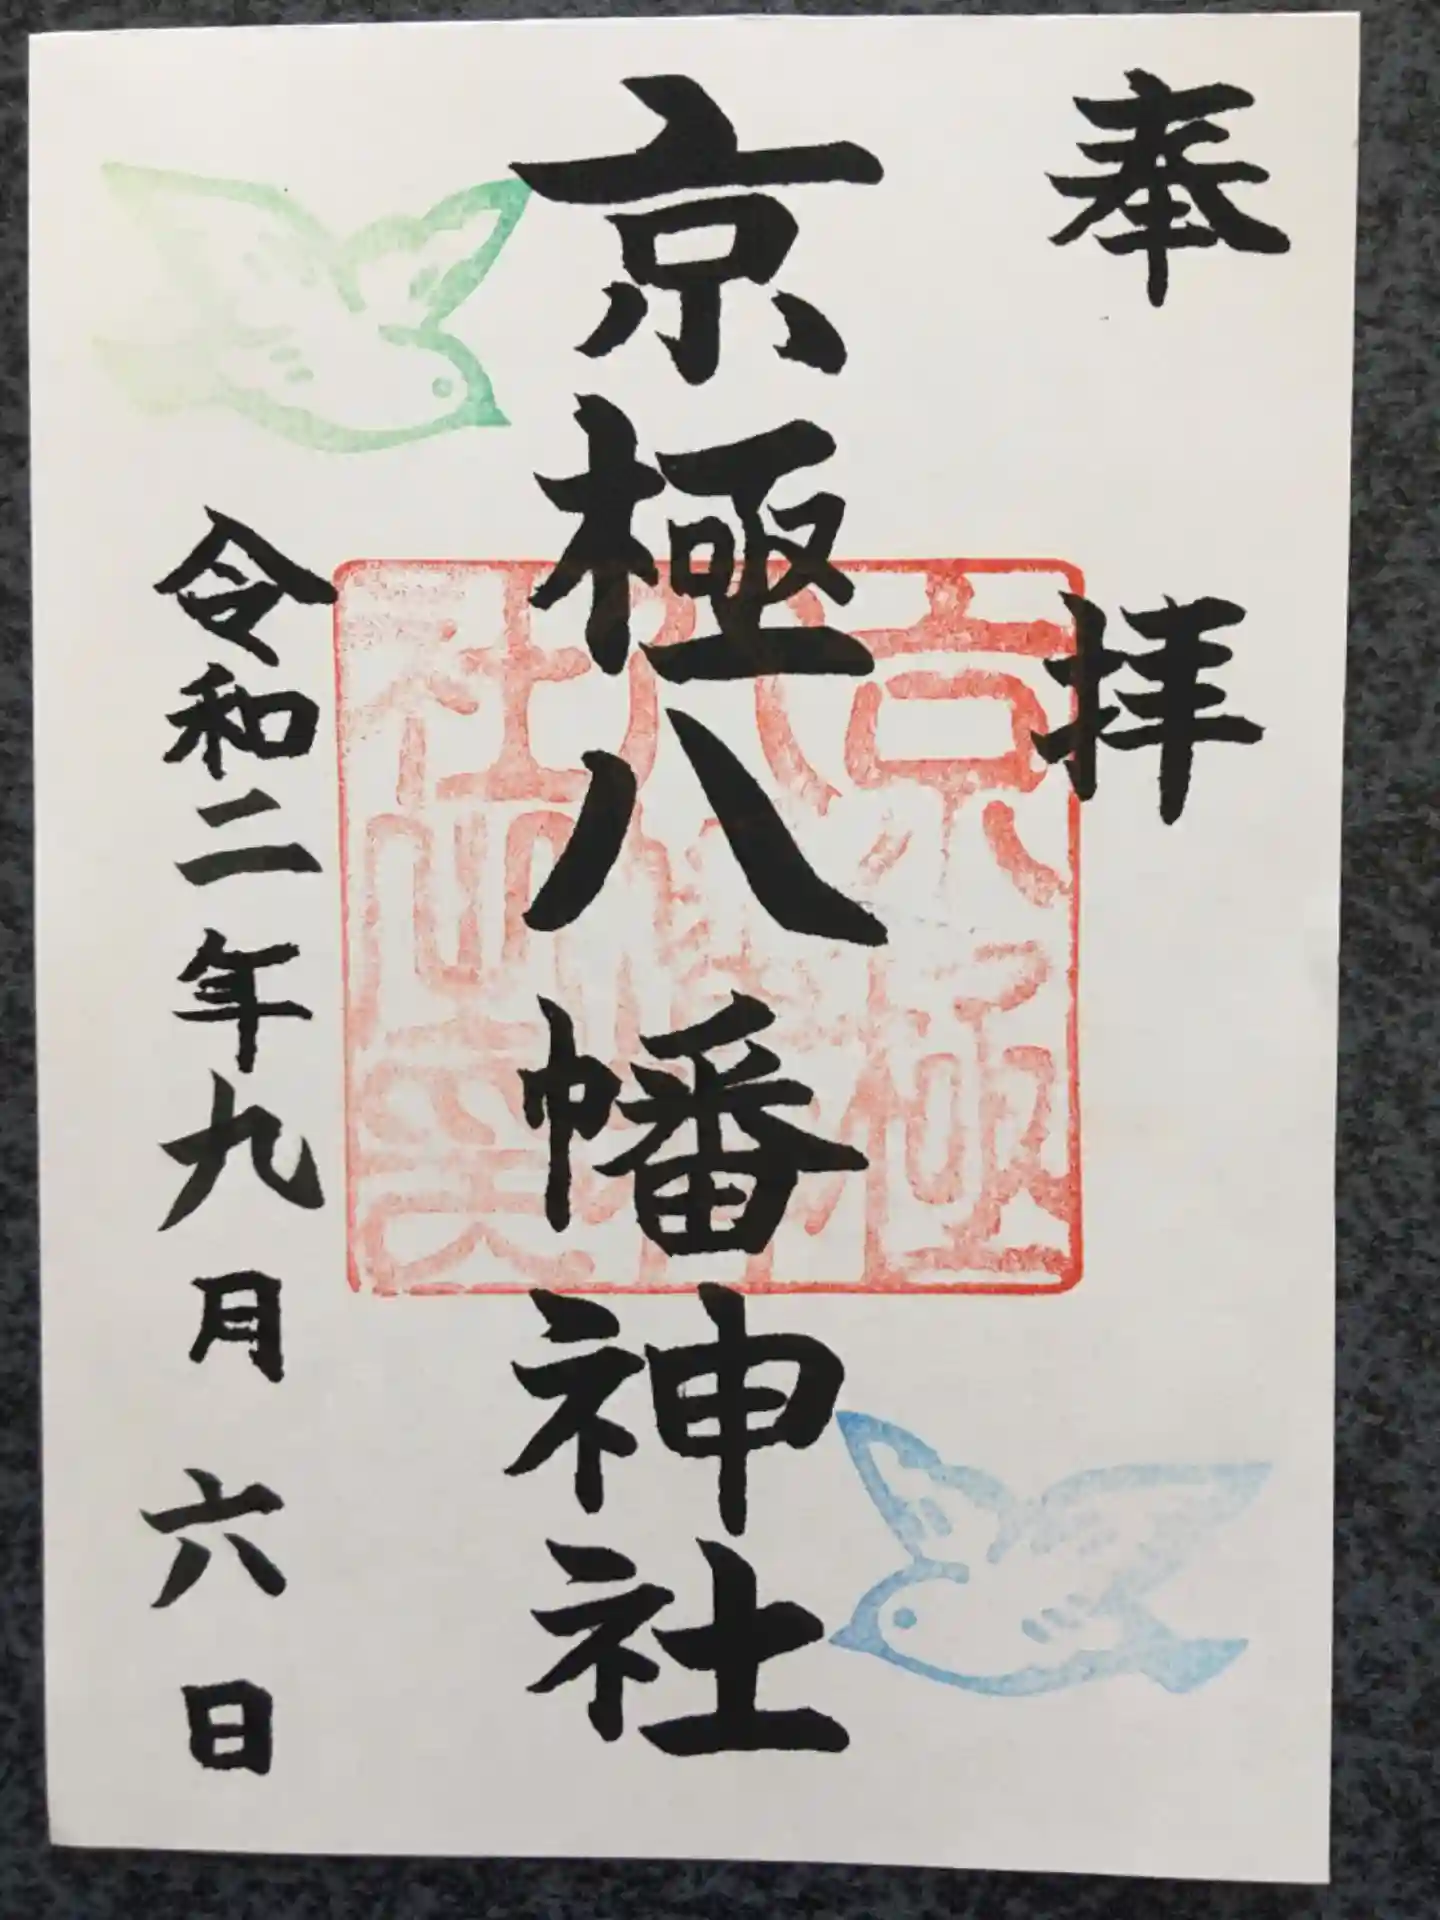 奉拝
京極八幡神社
令和二年九月六日
京極
八幡神
社之印